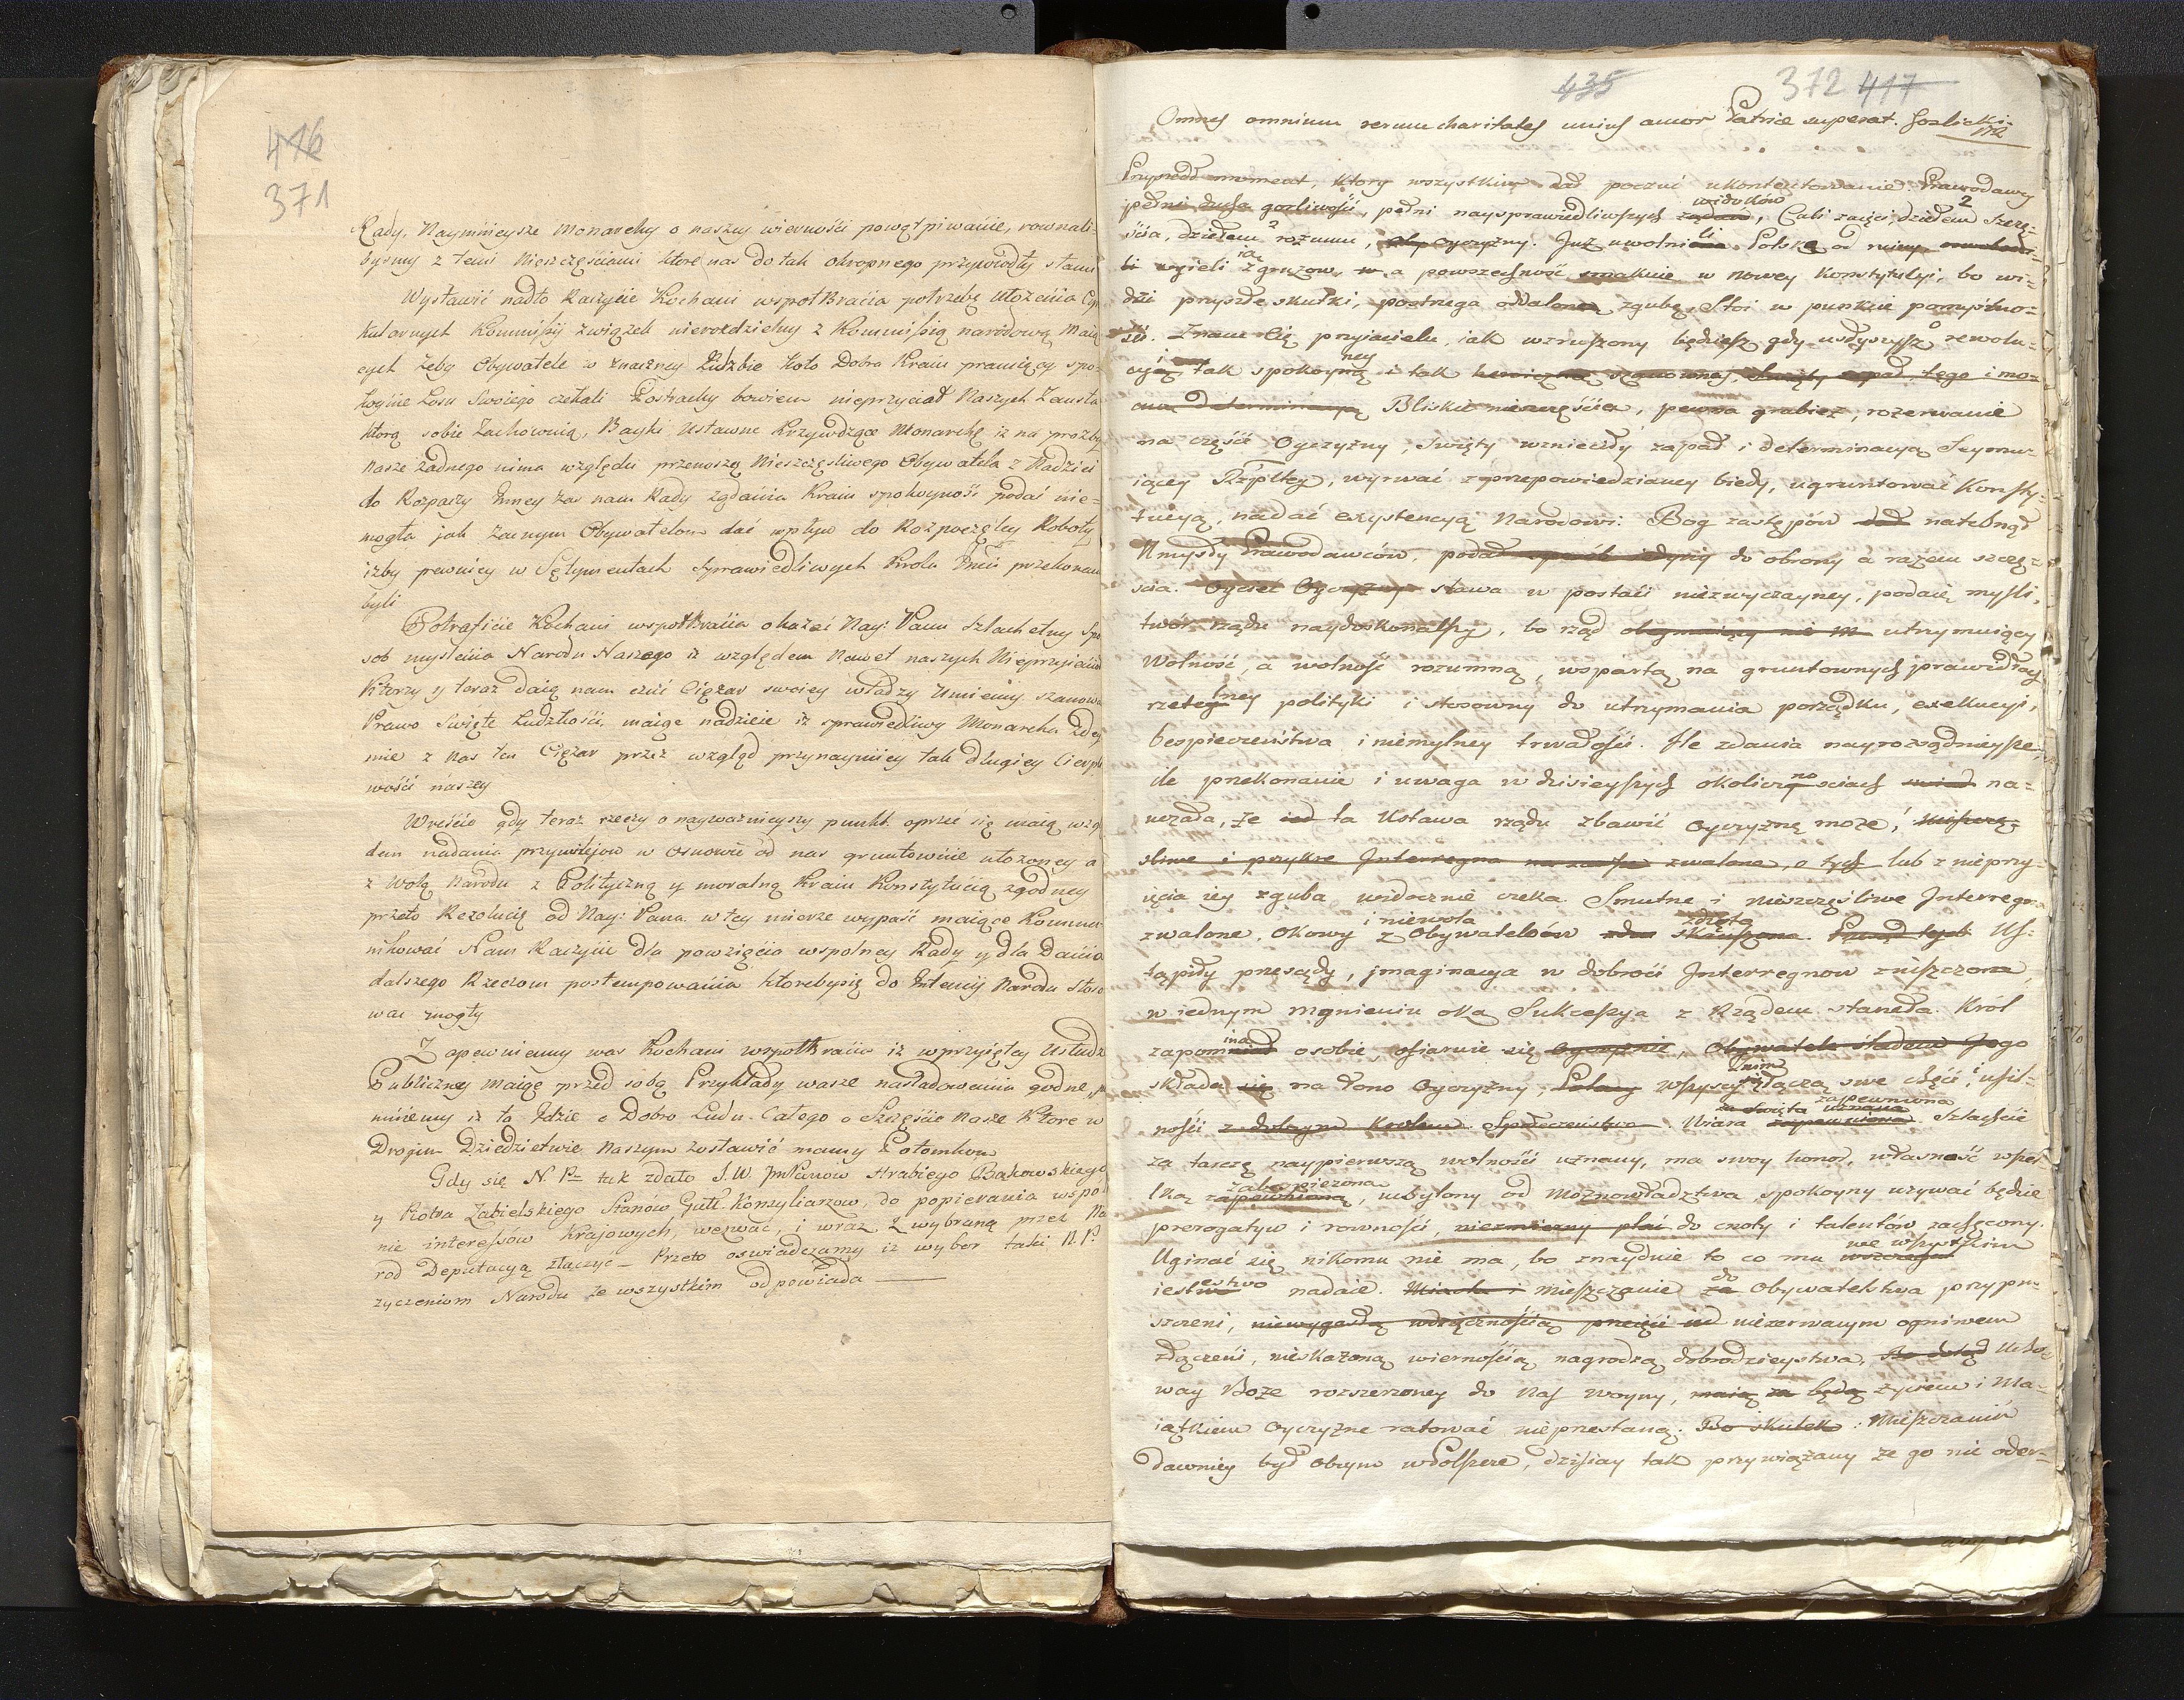 446
371
Rady, Naymnieysze Monarchy o naszey wierności powątpiwanie, rownali-
bysmy z temi Nieszczęściami ktore nas do tak okropnego przywiodły stanu
Wystawić nadto Raczycie Kochani wspołBraćia potrzebę Ułożenia Cyr
kularnych Kommissyi związek nierozdzielny z Kommissią narodową Maią
cych żeby Obywatele w znaczney Liczbie koło Dobra Kraiu pracuiący spo-
koynie Losu Swoiego czekali Postrachy bowiem nieprzyiacioł Naszych
ktorą sobie Zachowuią, Bayki Ustawne Krzywdzące Monarchę iz na prozby
nasze żadnego nima względu przenoszą Nieszczęsliwego Obywatela z Nadziei
do Rozpaczy Inney zas nam Rady Zgdania Kraiu spokoyność podać nie-
mogła jak Zacnym Obywatelom dać wpływ do Rozpoczętey Roboty
izby pewniey w Sętymentach Sprawiedliwych Krola Jmci przekonani
byli
Potraficie Kochani wspołBraćia okazać Nay: Panu Szlachetny Spo
sob myslenia Narodu Naszego iz względem Nawet naszych Nieprzyiacioł
Ktorzy y teraz daią nam czuć Ciężar swoiey władzy Umiemy szanować
Prawo Swięte Ludzkości, maiąc nadzieie iz sprawiedliwy Monarcha Zdey
mie z nas ten Ciężar przez wzgląd przynaymniey tak długiey Cierpli
wości naszey
Wreście gdy teraz rzeczy o nayważnieyszy punkt oprzeć się maią wzglę
dem nadania przywilejow w Osnowie od nas gruntownie ułożoney a
z wolą Narodu z Polityczną y moralną Kraiu Konstytucią zgodney
przeto Rezolucię od Nay: Pana w tey mierze wypaść maiące Kommu
nikować Nam Raczycie dla powzięcia wspolney Rady y dla Dania
dalszego Rzeczom postempowania ktorebysię do Intencij Narodu stoso
wac mogły
Zapewniemy was Kochani wspołBraćia iz w przyiętey Usłudze
Publiczney Maiąc przed sobą Przykłady wasze nasladowania godne,
mniemy iz tu Idzie o Dobro Ludu Całego o Szczęście nasze Ktore w
Drogim Dziedzictwie Naszym zostawić mamy Potomkom
Gdy się N. Pa: tuk zdało J. W. JmPanow Hrabiego Bąkowskiego
y Piotra Zabielskiego Stanów Gall. Konsyliarzow, do popierania wspo
nie interessow Krajowych, wezwać, i wraz z wybraną przez Na
rod Deputacyą złączyć – Przeto oswiadczamy iz wybor taki N. P.
zyczeniom Narodu ze wszystkim odpowiada —
435 372 417
Omnes omnium rerum charitates unius amor Patriæ superat.
Przyszedł moment, ktory wszystkim dał poczuć ukontentowanie. Prawodawcy
widoków
pełni ducha gorliwości, pełni naysprawiedliwszych żądań, Cali zaięci, dziełem 2 Szczę-
ścia, dziełem 2 rozumu, Oyczyzny. Już uwolnili Polskę od
z gruzow, a powszechność smakuie w nowey konstytucyi, bo wi-
dzi przyszłe skutki, postrzega oddaloną zgubę, Stoi w punkcie pomyslno-
ści. Znam Cię przyiacielu, iak wzruszony będziesz gdy usłyszysz o rewolu-
cyi tak spokoyney i tak
Bliskie nieszczęścia, pewna grabież, rozerwanie
na części Oyczyzny, Swięty wznieciły zapał i determinacyą Seymu-
iącey Rzpltey, wyrwać z przepowiedzianey biedy, ugruntować Konsty-
tucyą, nadać exystencyą Narodowi. Bog zastępów dał natchnął
Umysły Prawodawców, podał sposób iedyny do obrony a razem szczę-
scia. Oyciec Oyczyzny stawa w postaci niezwyczayney, podaię myśli,
twór rządu naydoskonalszy, bo rząd utrzymuiący
Wolność, a wolność rozumną, wspartą na gruntownych prawidłach
rzetelney polityki i stosowny do utrzymania porządku, exekucyi,
bespieczeństwa i niemylney trwałości. Ile zdania nayrozsądnieysze,
ile przekonania i uwaga w dzisieyszych okolicznosciach na-
uczała, że ta Ustawa rządu zbawić Oyczyznę może,
i przykre Interregna zwalone, o tych lub z nieprzy-
ięcia iey zguba widocznie czeka. Smutne i nieszczęśliwe Interregna
i niewola zdięta
zwalone, okowy z Obywatelów skruszone. Us-
tąpiły przesądy, jmaginacya w dobroci Interregnow zniszczona,
w iednym mgnieniu oka Sukcessya z Rządem staneła. Król
zapomina o sobie, ofiaruie się Oyczyznie, Obywatele śladem Jego
z nim
składa się na łono Oyczyzny, Polacy wszyscy złączą swe chęci i usil-
zapewniona
ności z dobrym Krolem Społeczenstwo. Wiara zapewniona. Szlachcic
za tarczę naypierwszą wolności uznany, ma swoy honor, własność wszel
zabespieczona
ką zapewnioną, uchylony od Moznowładztwa spokoyny uzywać będzie
prerogatyw i rowności, do cnoty i talentów zachęcony.
we wszystkim
Uginać się nikomu nie ma, bo znaydzie to co mu
iestestwo nadaie. Miasta i Mieszczanie do Obywatelstwa przypu-
szczeni, niewygasłą wdzięcznością przeięci nierozerwanym ogniwem
złączeni, nieskażoną wiernością nagrodzą dobrodzieystwa, Ucho-
way Boże rozszerzoney do Nas woyny, maią za będą życiem i Ma-
iątkiem Oyczyznę ratować nieprzestaną. Bo skutek: Mieszczanin
dawniey był obcym w Polszcze, dzisiay tak przywiązany że go nie oder-